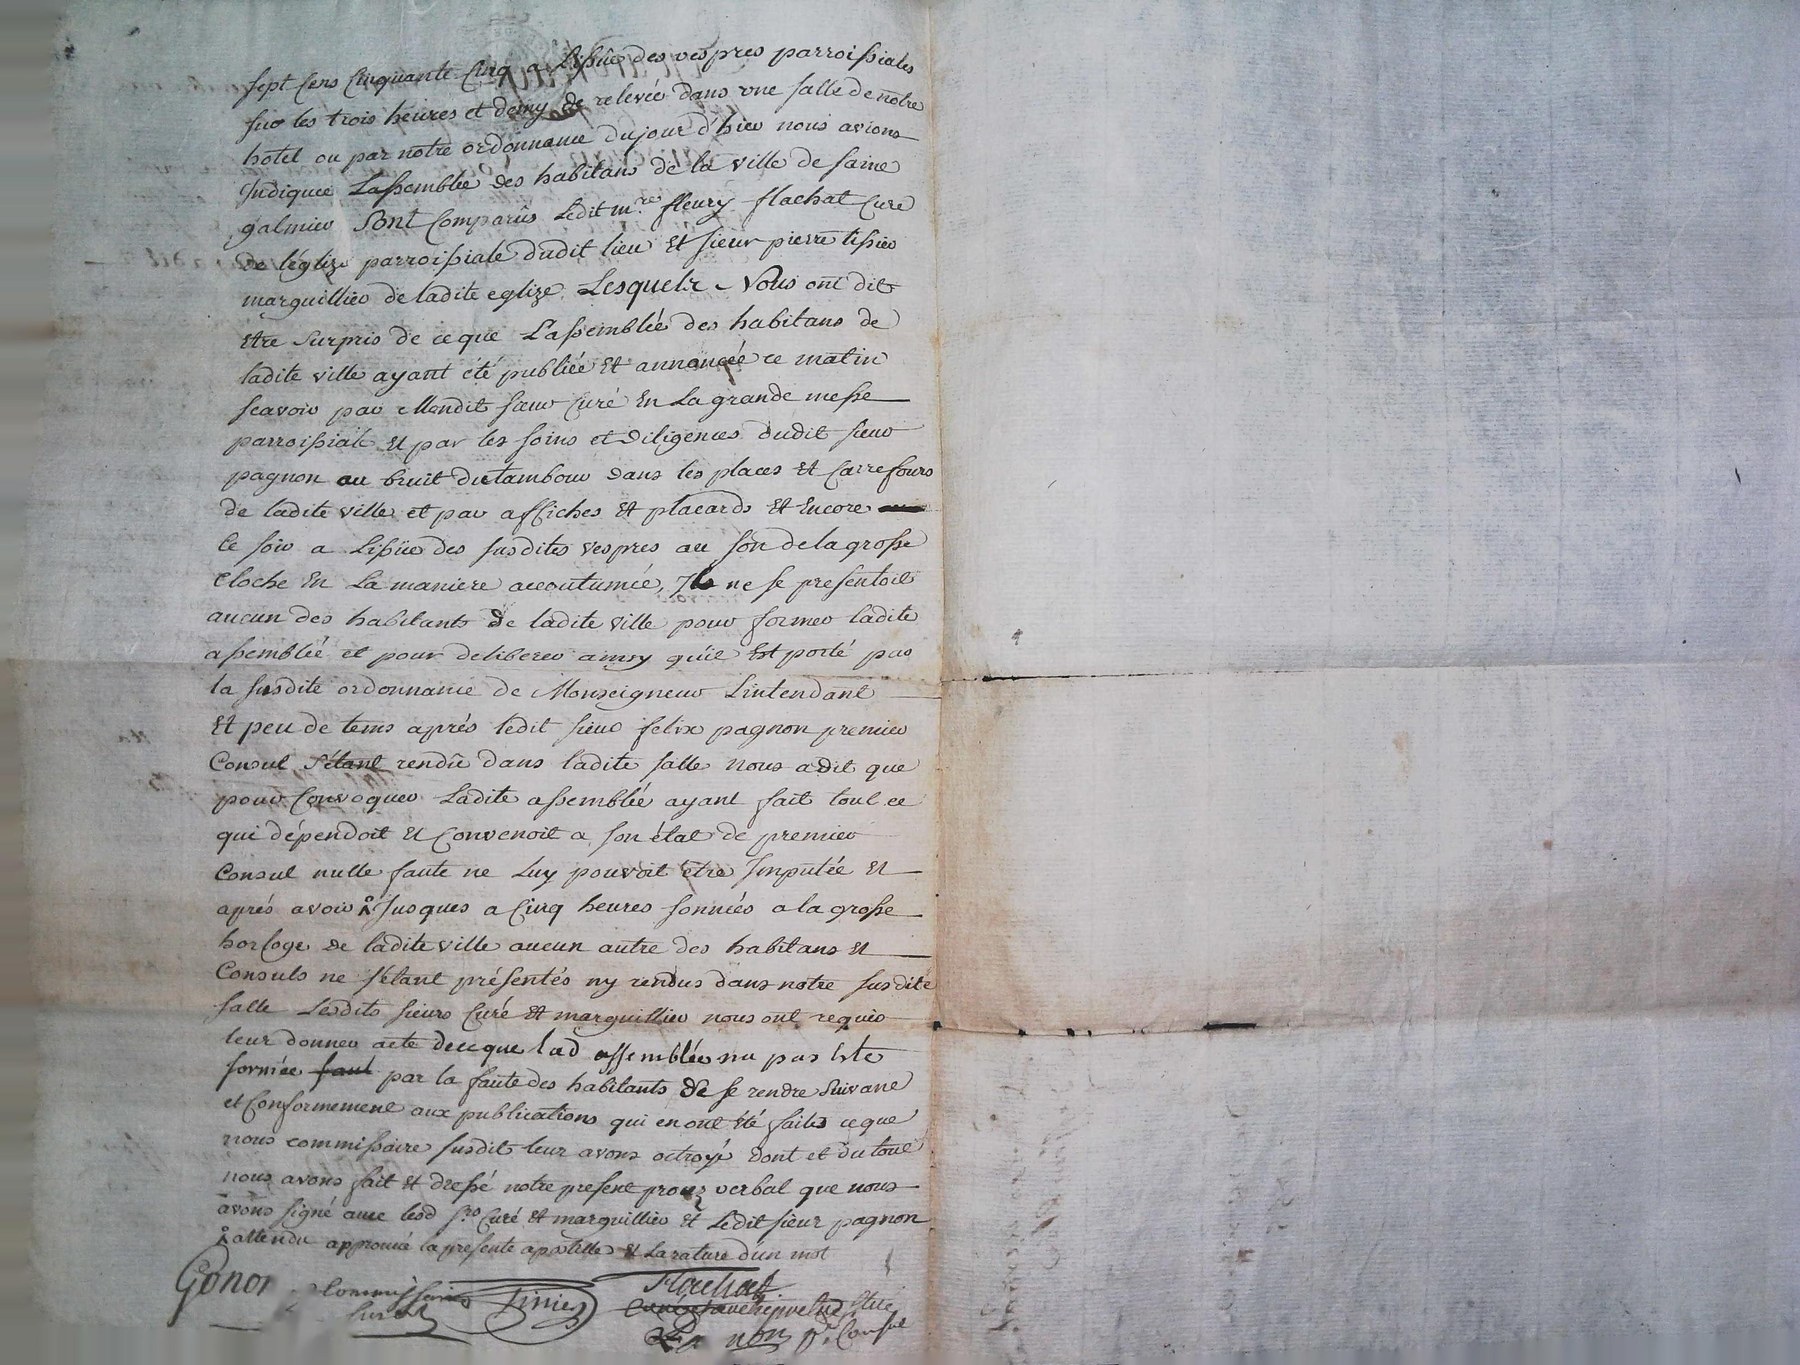 sept Cens Cinquante Cinq a Lissüe des vespres parroissiales
sur les trois heures et demy de relevée dans une salle de nôtre
hotel ou par nôtre ordonnance du jour d'hier nous avions
Indiquée Lassemblée des habitans de la ville de saine
galmier Sont Comparûs Ledit m.re fleury flachat Curé
de léglize parroissiale dudit lieu et sieur pierre tissier
marguillier de ladite eglize. Lesquels Nous ont dit
etre surpris de ce que Lassemblée des habitans de
ladite ville ayant été publiée et annoncée ce matin
scavoir par Mondit sieur Curé En La grande messe
parroissiale et par les soins et diligences dudit sieur
pagnon au bruit du tambour dans les places et Carrefours
de ladite ville et par affiches et placards et Encore
ce soir a Lissüe des susdites vespres au son de la grosse
Cloche En La maniere accoutumée, Il ne se presentoit
aucun des habitants de ladite ville pour former ladite
assemblée et pour deliberer ainsy qu'il Est porté par
la susdite ordonnance de Monseigneur Lintendant
Et peu de tems aprés ledit sieur felix pagnon premier
Consul s'étant rendû dans ladite salle nous a dit que
pour Convoquer Ladite assemblée ayant fait tout ce
qui dépendoit et Convenoit a son état de premier
Consul nulle faute ne Luy pouvoit être Imputée et
aprés avoir Jusques a Cinq heures sonnées a la grosse
horloge de ladite ville aucun autre des habitans et
Consuls ne s'étant présentés ny rendus dans notre susdite
salle Lesdits sieurs Curé et marguillier nous ont requis
leur donner acte de ce que lad assemblée na pas Eté
formée faut par la faute des habitants de se rendre suivant
et Conformement aux publications qui en ont été faites ce que
nous commissaire susdit leur avons octroyé dont et du tout
nous avons fait et dressé notre present procez verbal que nous
avons signé avec lesd srs Curé et marguillier et Ledit sieur pagnon
attendu approuvé la presente apostille et La rature d'un mot
Gonon Commissaire
Flachat
Curé
Tissier
pr. Consul